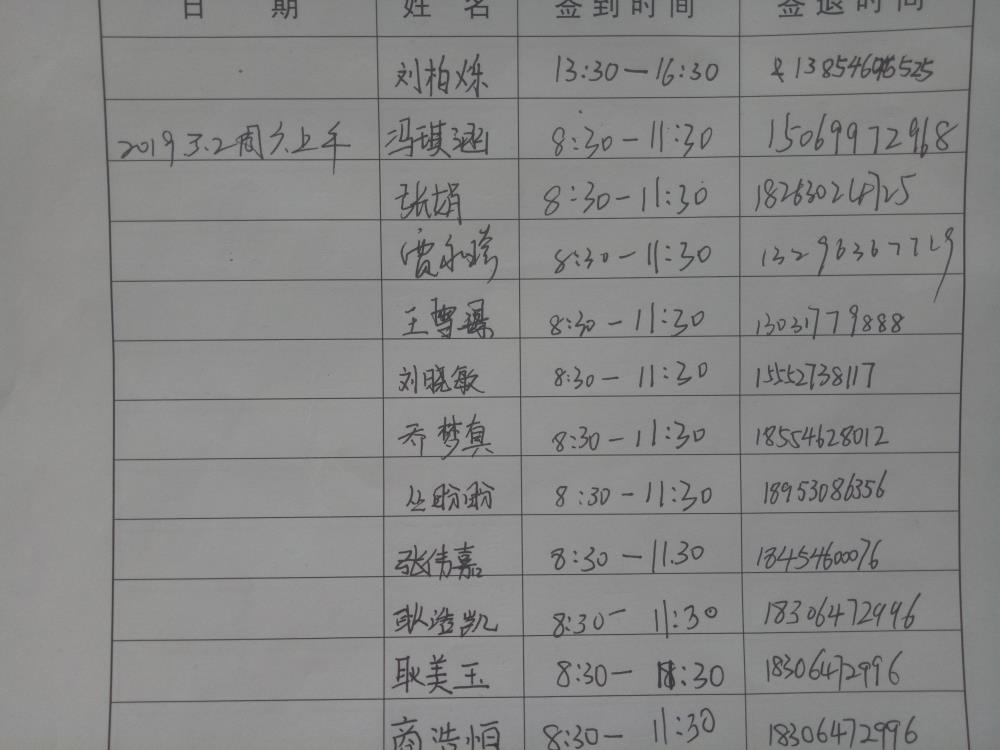 日 期 姓 名 签到时间 签退时间
刘柏烁 13:30—16:30
2019.3.2周六上午 冯琪涵 8:30-11:30 15069972968
张娟 8:30-11:30 18263024725
贾永 8:30-11:30 13296367729
王雪 8:30-11:30 13031779888
刘晓敏 8:30-11:30 15552738117
乔梦真 8:30-11:30 18554628012
丛盼盼 8:30-11:30 18953086356
张伟嘉 8:30-11.30 18454600076
耿浩凯 8:30- 11:30 18306472996
耿美玉 8:30- 11:30 18306472996
商浩恒 8:30- 11:30 18306472996